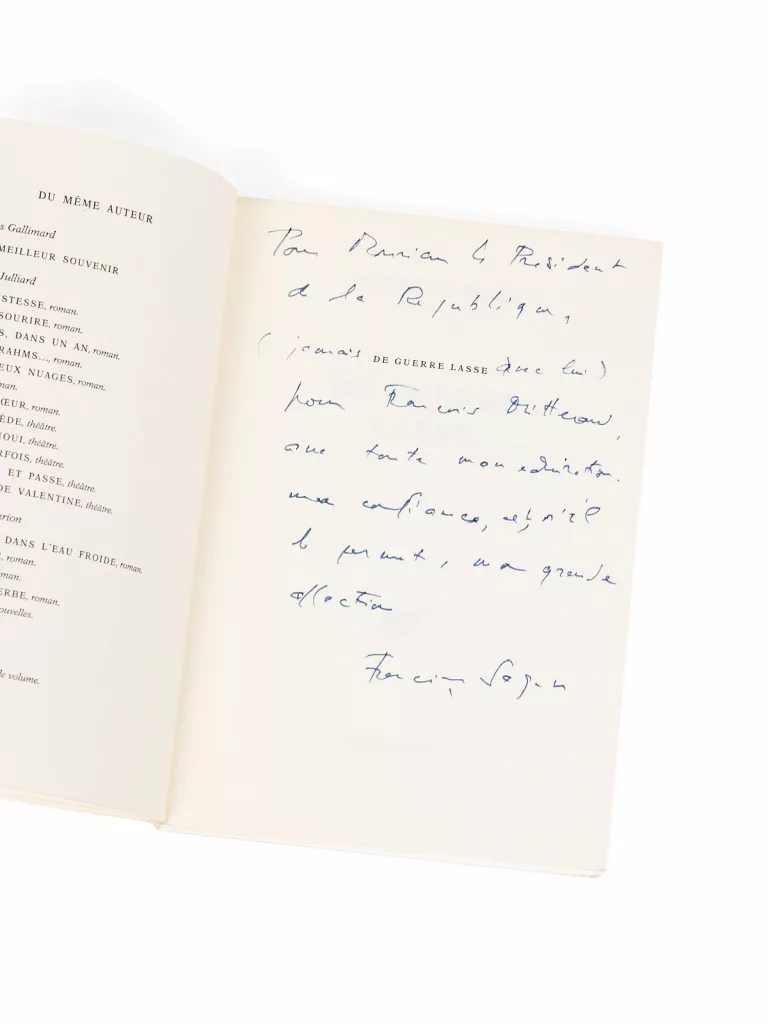 DU MÊME AUTEUR
s Gallimard
MEILLEUR SOUVENIR
Julliard
STESSE, roman.
SOURIRE, roman.
S, DANS UN AN, roman.
RAHMS..., roman.
EUX NUAGES, roman.
man.
ŒUR, roman.
ÈDE, théâtre.
OUI, théâtre.
RFOIS, théâtre.
ET PASSE, théâtre.
DE VALENTINE, théâtre.
arion
DANS L'EAU FROIDE, roman.
, roman.
man.
ERBE, roman.
ouvelles.
le volume.
Pour Monsieur le Président
de la République,
(jamais DE GUERRE LASSE avec lui)
pour François Mitterand,
avec toute mon admiration.
ma confiance, et, s'il
le permet, ma grande
affection
Françoise Sagan